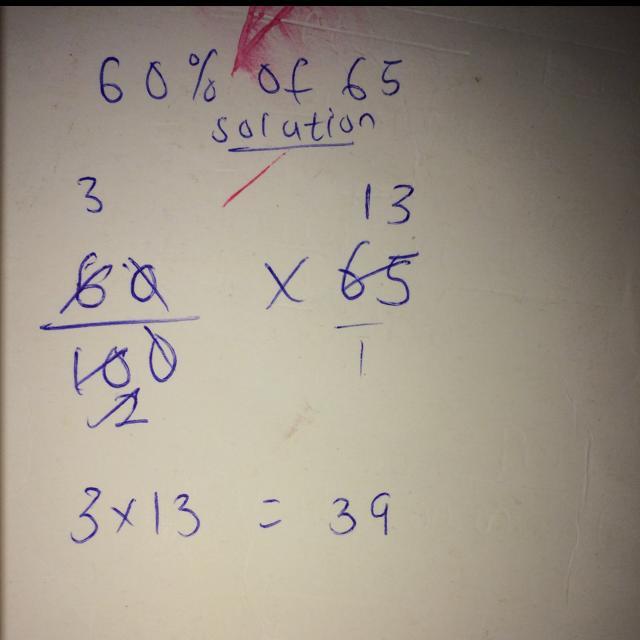 60% of 65
solution
3 13
60 × 65
100 1
2
3×13 = 39